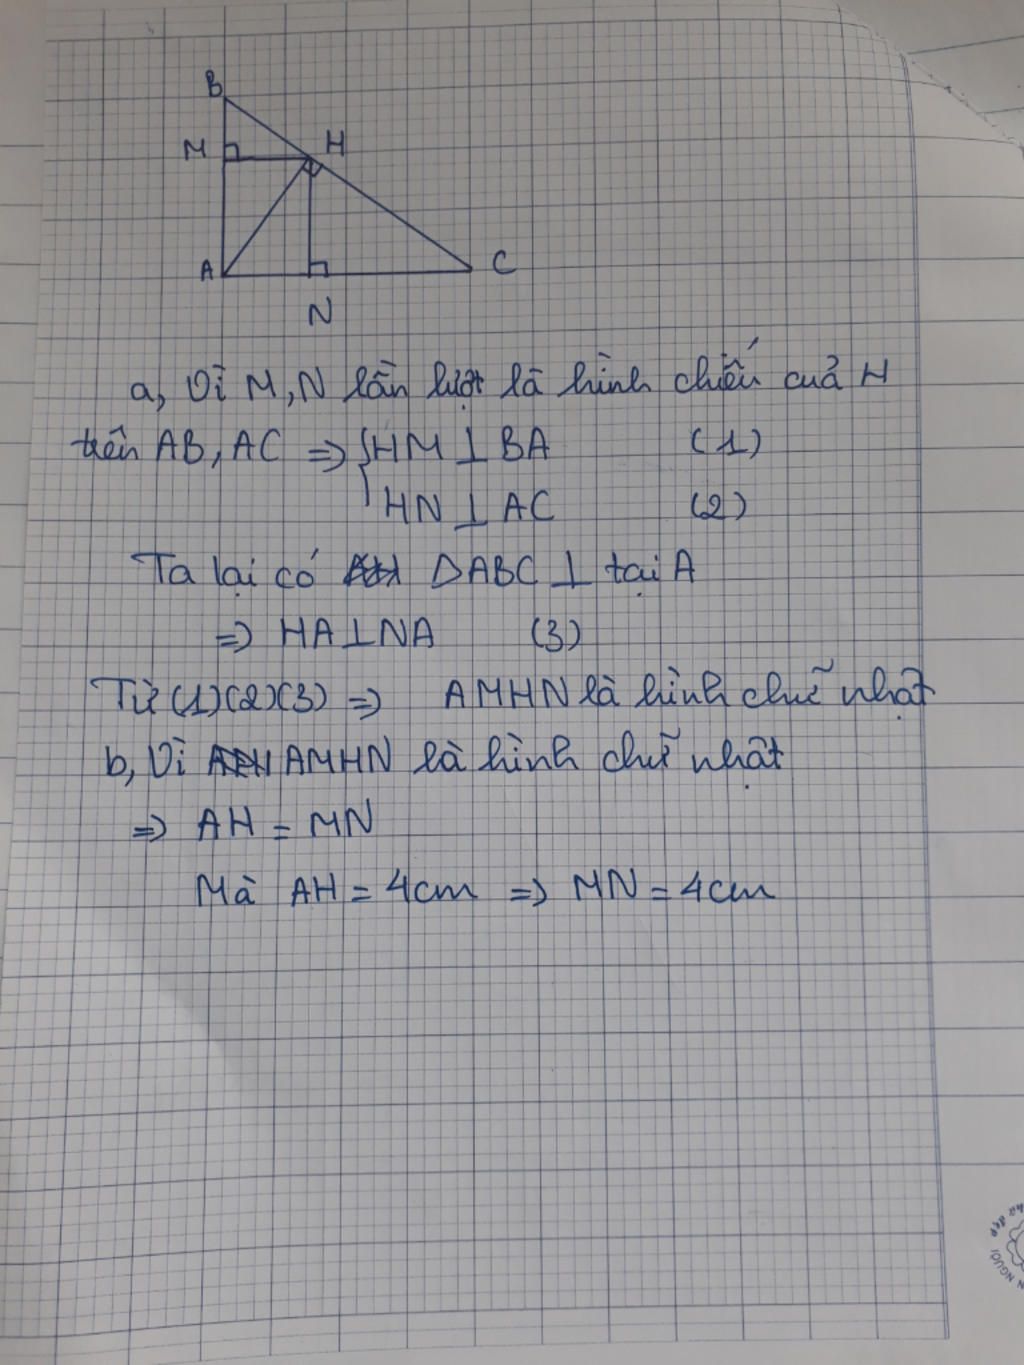 B
M
H
A
C
N
a, Vì M, N lần lượt là hình chiếu cuả H
trên AB, AC => { HM ⊥ BA (1)
HN ⊥ AC (2)
Ta lại có ΔABC ⊥ tại A
=> HA ⊥ NA (3)
Từ (1)(2)(3) => AMHN là hình chữ nhật
b, Vì AMHN là hình chữ nhật
=> AH = MN
Mà AH = 4cm => MN = 4cm